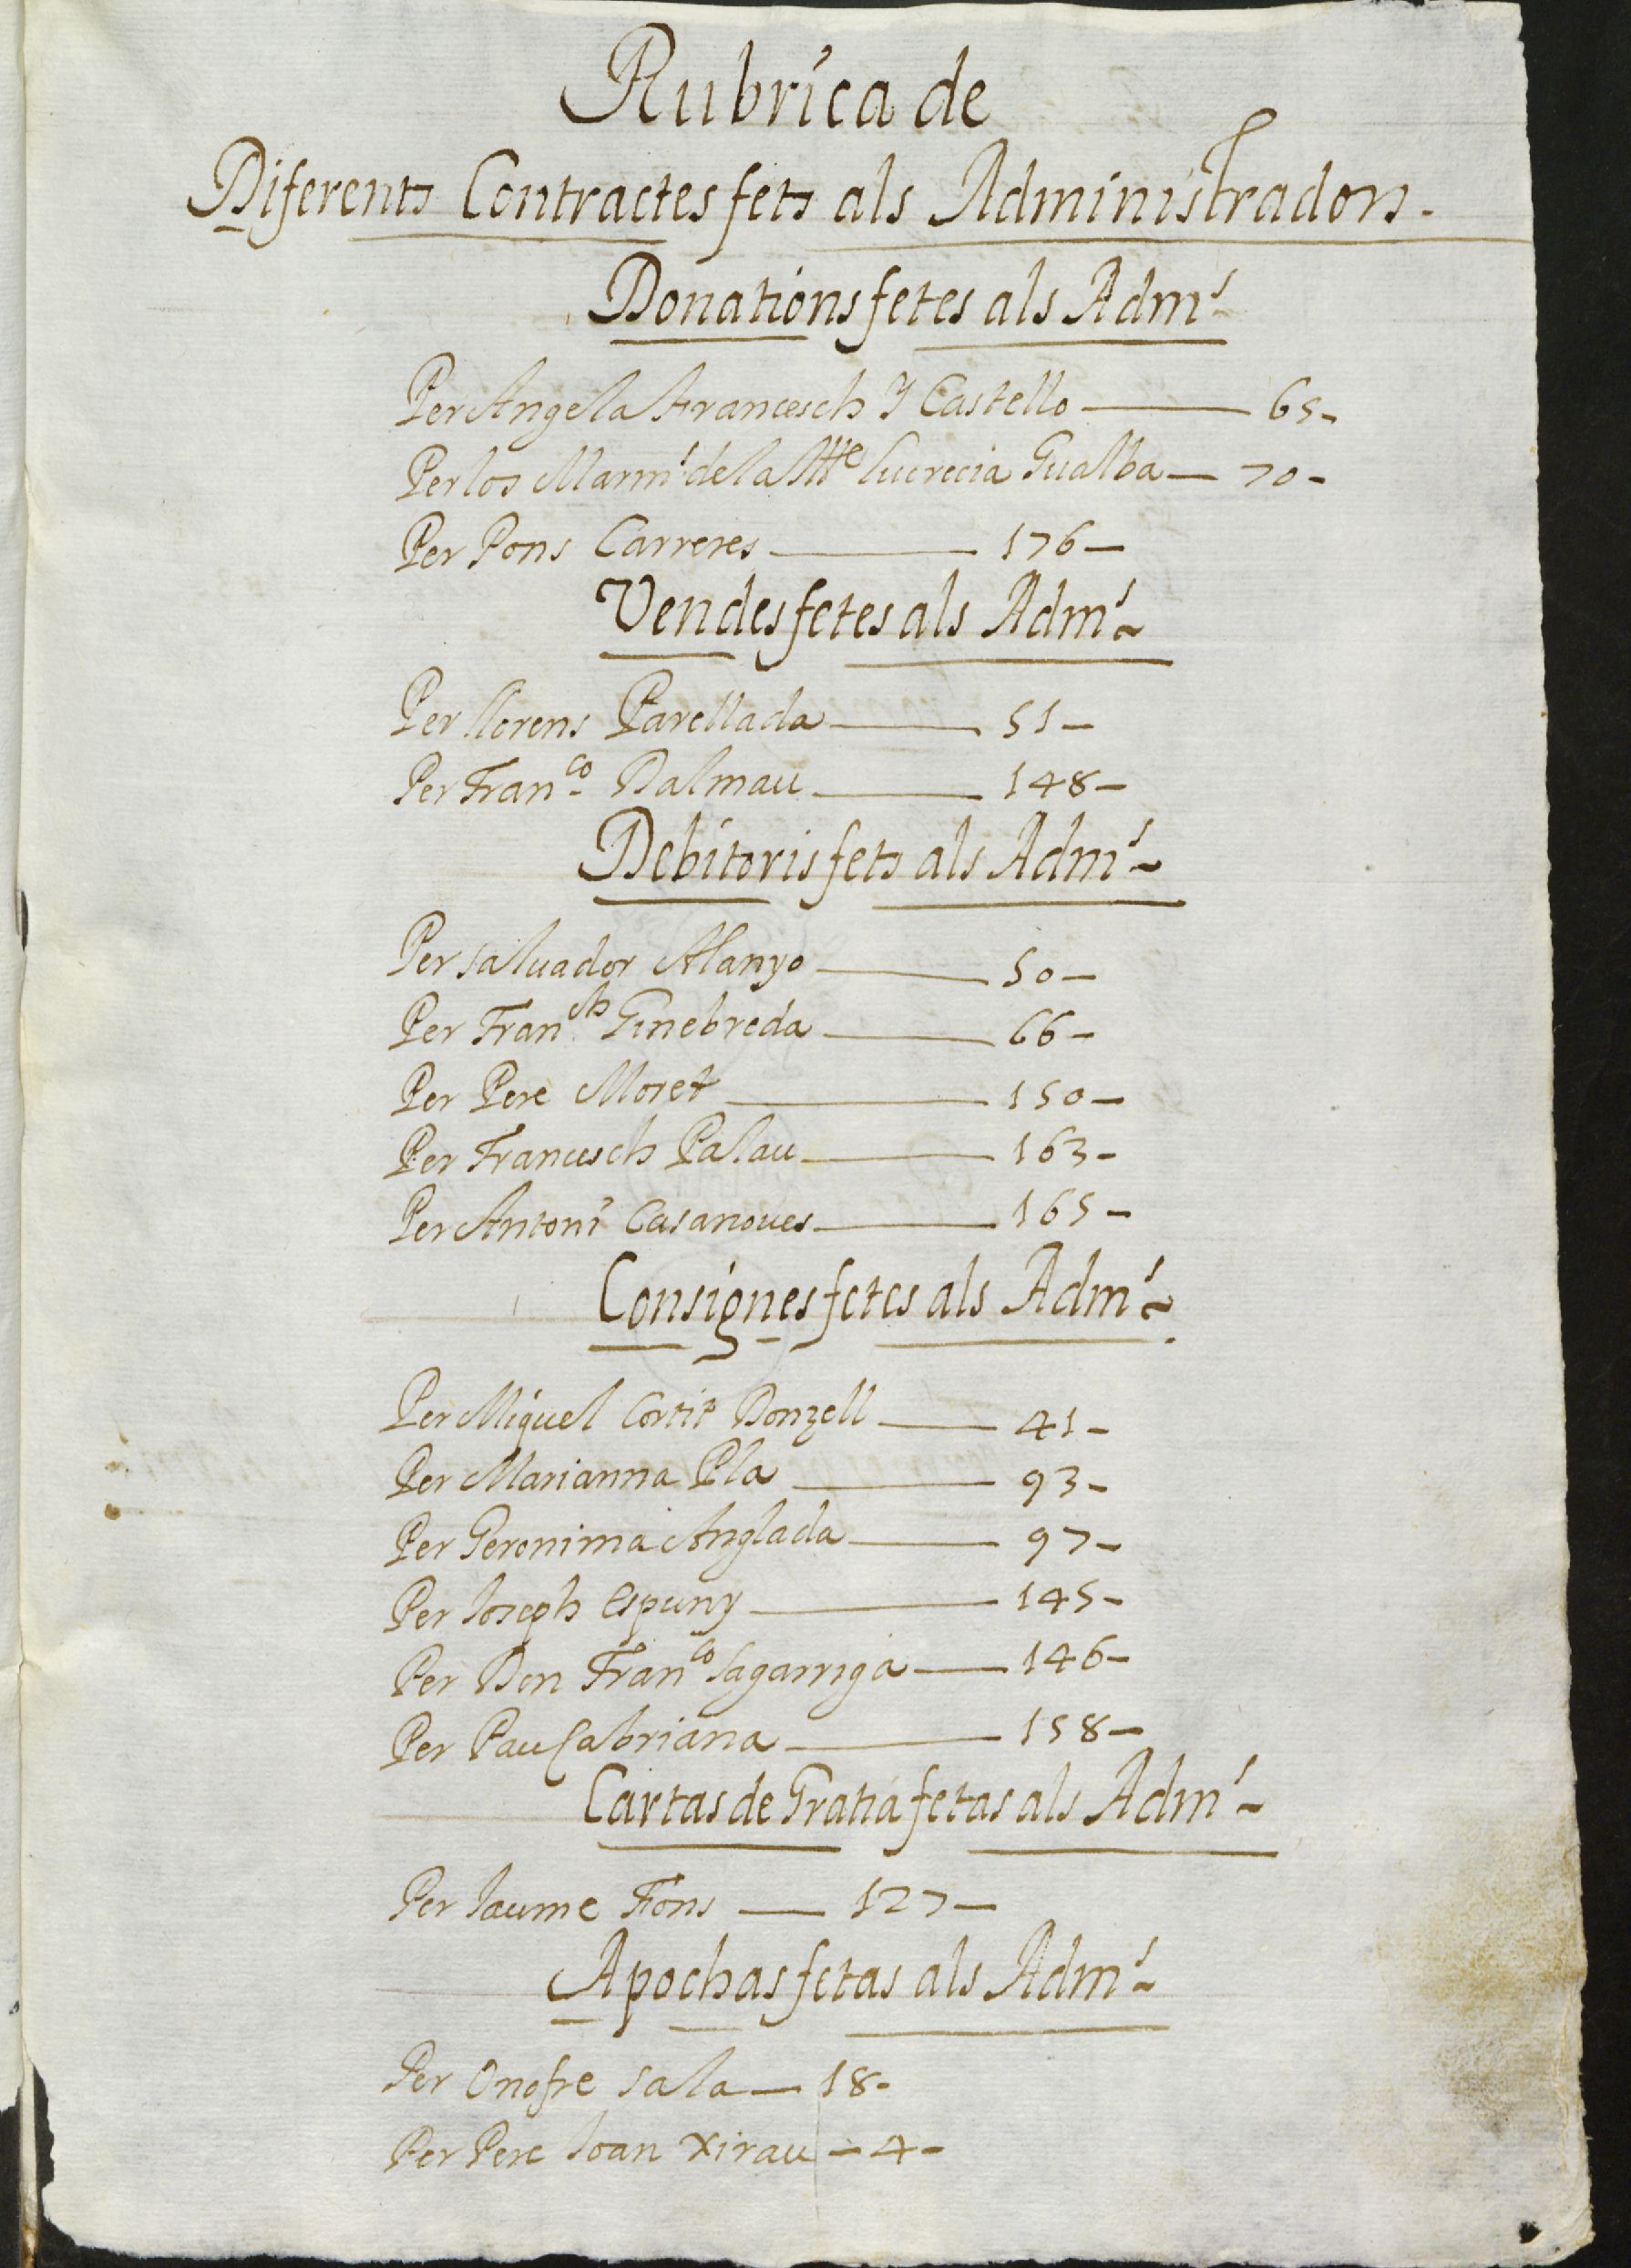 Rubrica de
Diferents Contractes fets als Administradors.
Donations fetes als Adm.ˢ
Per Angela Francesch Y Castello — 65-
Per los Marm.ˢ de la Itte Lucrecia Gualba — 70-
Per Pons Carreres — 176-
Vendes fetes als Adm.ˢ
Per Llorens Parellada — 51-
Per Fran.co Dalmau — 148-
Debitoris fets als Adm.ˢ
Per Saluador Alanyo — 50-
Per Fran.ch Ginebreda — 66-
Per Pere Moret — 150-
Per Francesch Palau — 163-
Per Antoni Casanoues — 165-
Consignes fetes als Adm.ˢ
Per Miquel Cortit Donzell — 41-
Per Marianna Pla — 93-
Per Geronima Anglada — 97-
Per Joseph Espuny — 145-
Per Don Fran.co Sagarriga — 146-
Per Pau Çabriana — 158-
Cartas de Gratia fetas als Adm.ˢ
Per Jaume Fons — 127-
Apochas fetas als Adm.ˢ
Per Onofre Sala — 18-
Per Pere Joan Xirau — 4-